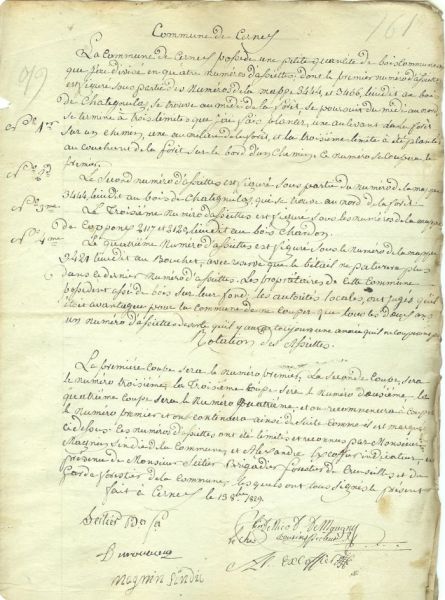 Commune de Cernex
161
La Commune de Cernex possede une petite quantité de bois communeaux
que j'ai divisé en quatre numéros d'assiettes, dont le premier numéro d'assiette
est figuré sous partie des Numéros de la mappe 3444 et 3466, lieudit au bois
de Chatagnulas, se trouve au midi de la forêt se poursuit du midi au nord
Nº 1er
se termine à trois limites que j'ai fais planter, une au levant de la forêt
sur un chemin, une au milieu de la forêt, et la troisième limite a été plantée
au couchant de la forêt sur le bord d'un Chemin, ce numéro se coupera le
premier.
Nº 2d
Le Second numéro d'assiettes est figuré sous partie du numéro de la mappe
3444, lieudit au bois de Chatagnulas, que se trouve au nord de la forêt.
Nº 3me
Le Troisième Numéro d'assiettes est figuré sous les numéros de la mappe
de Copponex 2117 et 3123 lieudit au bois Chardon.
Nº 4me
Le quatrième Numéro d'assiettes est figuré sous le Numéro de la mappe
3421 lieudit au Bouchet, avec réserve que le bétail ne paturera plus
dans ce dernier Numéro d'assiettes. Les propriétaires de cette Commune
possèdent assé de bois sur leur fond, les autorités locales, ont jugés qu'il
étoit avantageux pour la commune de ne couper que tous les deux ans
un numéro d'assiette de sorte qu'il y aura toujours une année qu'il ne coupera pas
Notation des Assiettes.
La première Coupe sera le Numéro premier, La Seconde Coupe, sera
le numéro troisième, la Troisième Coupe sera le Numéro deuxième, la
quatrième Coupe sera le Numéro quatrième, et on recommencera à couper
le Numéro premier et on continuera ainsi de suite comme il est marqué
ci-dessus. Les numéros d'assiettes ont été limités et reconnus par Monsieur
Magnin Sindic de la Commune, et Alexandre Excoffier indicateur, en
présence de Monsieur Seitier Brigadier forestier de Cruseilles et du
Garde forestier de la Commune lesquels ont tous Signés le présent
fait à Cernex le 13 8bre 1829.
Seitier
Magnin Sindic
A. Excoffier